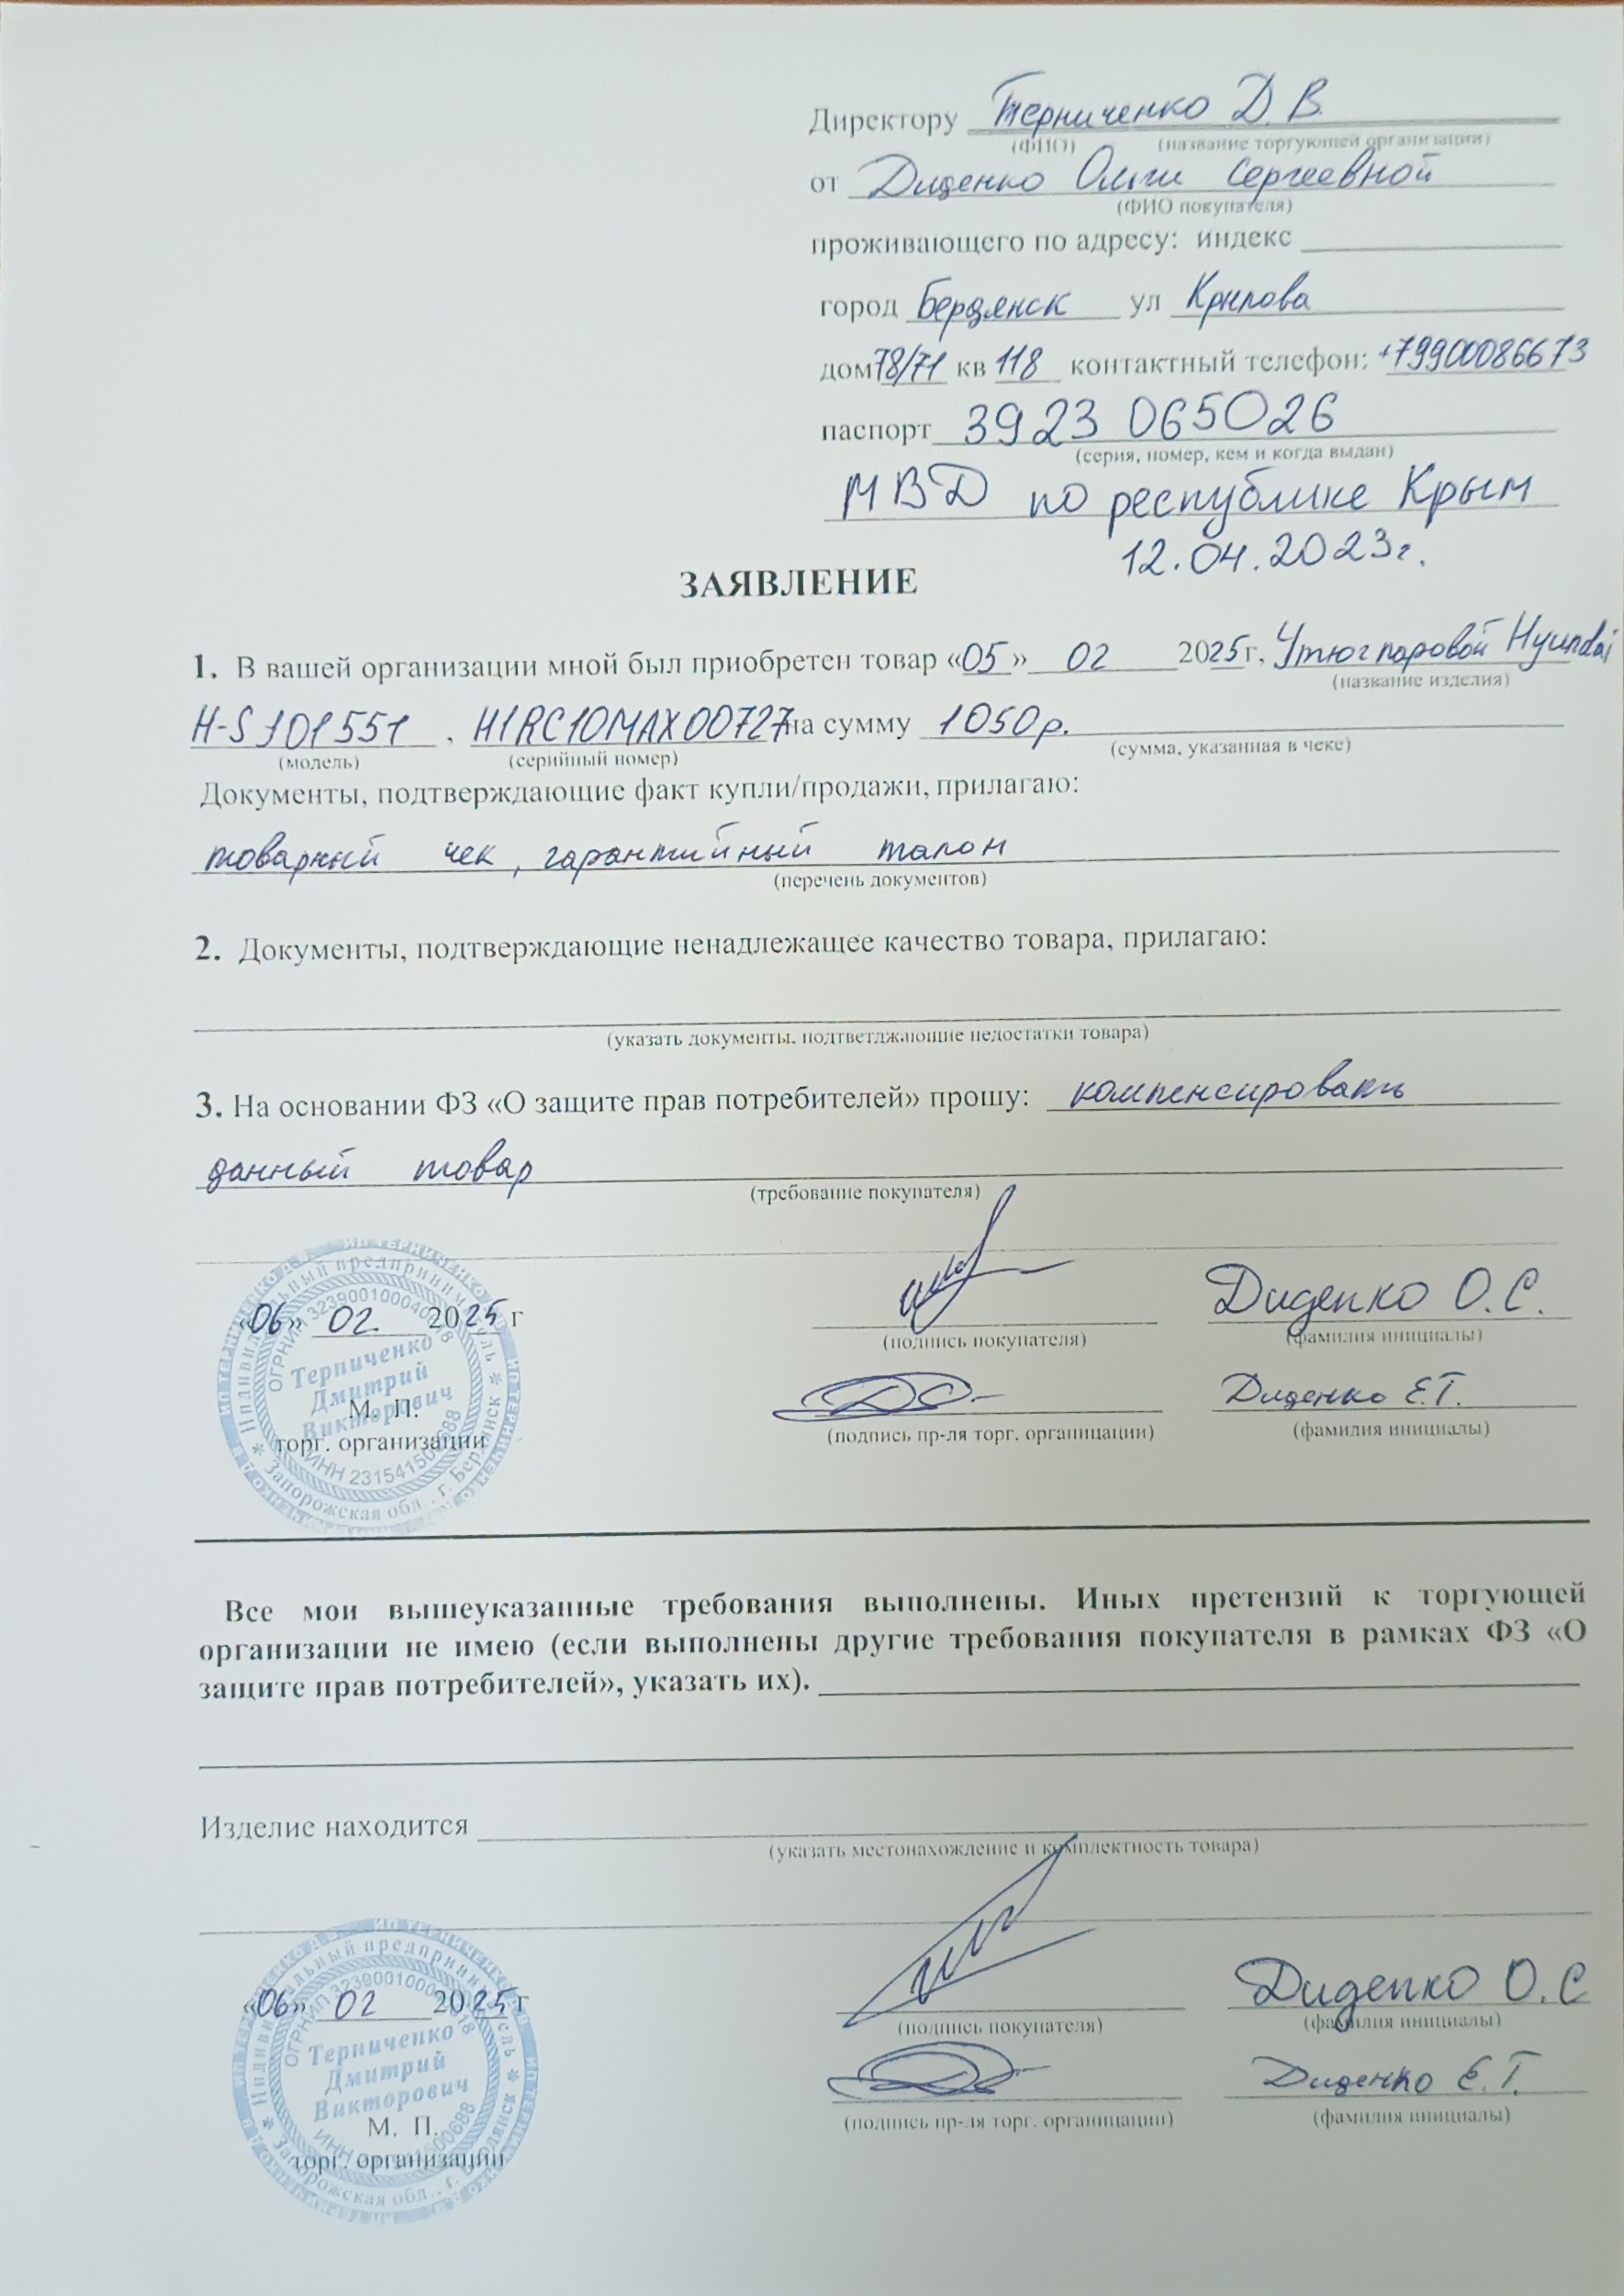 Директору Терниченко Д. В.
(ФИО) (название торгующей организации)
от Диденко Ольги Сергеевной
(ФИО покупателя)
проживающего по адресу: индекс
город Бердянск ул Крилова
дом 78/71 кв 118 контактный телефон: +79900086673
паспорт 3923 065026
(серия, номер, кем и когда выдан)
МВД по республике Крым
12.04.2023г.
ЗАЯВЛЕНИЕ
1. В вашей организации мной был приобретен товар «05» 02 2025г, Утюг паровой Hyundai
(название изделия)
H-S101551, H1RC10MAX00727 на сумму 1050р.
(модель) (серийный номер) (сумма, указанная в чеке)
Документы, подтверждающие факт купли/продажи, прилагаю:
товарный чек, гарантийный талон
(перечень документов)
2. Документы, подтверждающие ненадлежащее качество товара, прилагаю:
(указать документы, подтветджающие недостатки товара)
3. На основании ФЗ «О защите прав потребителей» прошу: компенсировать
данный товар
(требование покупателя)
«06» 02. 2025 г Диденко О.С.
(подпись покупателя) (фамилия инициалы)
Диденко Е.Г.
(подпись пр-ля торг. органицации) (фамилия инициалы)
М. П.
торг. организации
ИП ТЕРНИЧЕНКО Д.В.
Индивидуальный предприниматель
Терниченко
Дмитрий
Викторович
Запорожская обл., г. Бердянск
Все мои вышеуказанные требования выполнены. Иных претензий к торгующей
организации не имею (если выполнены другие требования покупателя в рамках ФЗ «О
защите прав потребителей», указать их).
Изделие находится
(указать местонахождение и комплектность товара)
«06» 02 2025 г Диденко О.С
(подпись покупателя) (фамилия инициалы)
Диденко Е.Г.
(подпись пр-ля торг. органицации) (фамилия инициалы)
М. П.
торг. организации
ИП ТЕРНИЧЕНКО Д.В.
Индивидуальный предприниматель
Терниченко
Дмитрий
Викторович
Запорожская обл., г. Бердянск